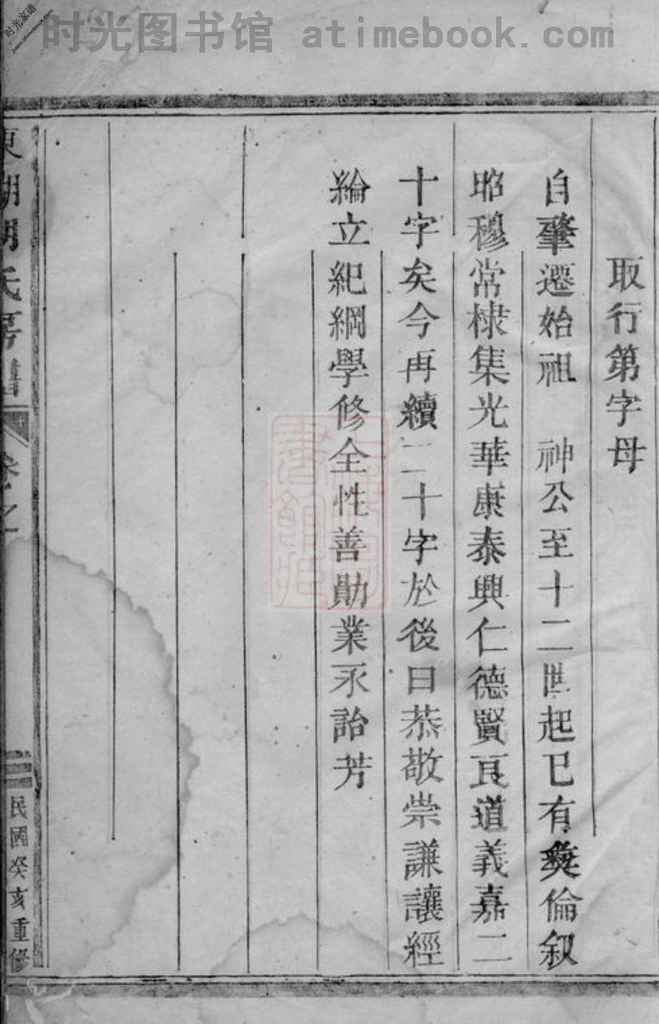 时光图书馆 atimebook.com
时光家谱
取行第字母
自肇遷始祖 神公至十二世起已有彝倫叙
昭穆常棣集光華康泰興仁德賢良道義嘉二
十字矣今再續二十字於後曰恭敬崇謙讓經
綸立紀綱學修全性善勛業永詒芳
東湖胡氏房譜
卷之
民國癸亥重修